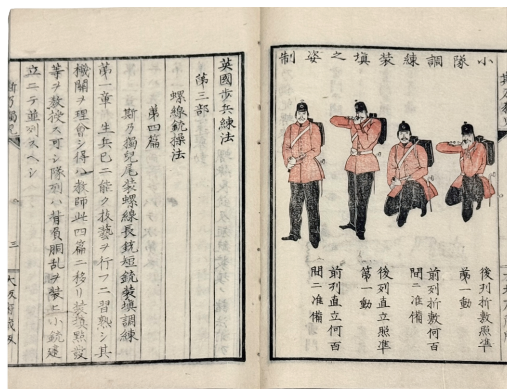 小隊調練裝填之姿制
後列折敷照準
第一動
前列折敷何百
間二准備
後列直立照準
第一動
前列直立何百
間二准備
英國歩兵練法
第三部
螺線銃操法
第四篇
斯乃獨兒尾装螺線長銃短銃装填調練
第一章 生兵已ニ能ク技藝ヲ行フニ習熟シ其
機關ヲ理會シ得ハ教師此四篇ニ移リ装填照放
等ヲ教授ス可シ隊列ハ背嚢胴乱ヲ装ヒ小銃
立ニテ並列スヘシ
三